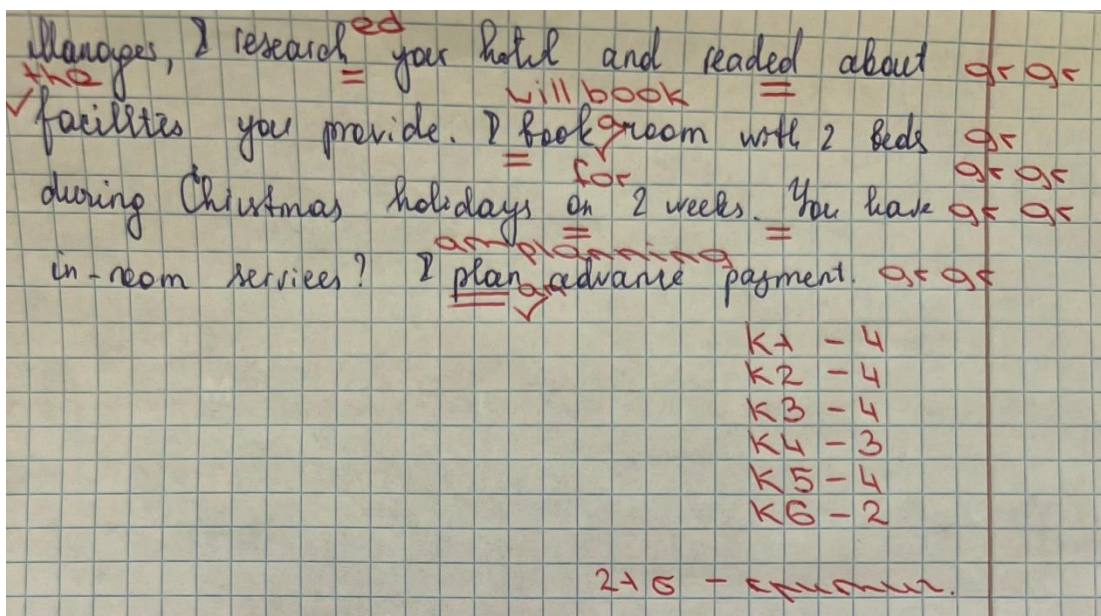 Manager, I research ed your hotel and readed about gr gr
the
will book
✓ facilities you provide. I book a room with 2 beds gr
for
gr gr
during Christmas holidays on 2 weeks. You have gr gr
am planning
in-room services? I plan an advance payment. gr gr
K1 - 4
K2 - 4
K3 - 4
K4 - 3
K5 - 4
K6 - 2
21 б -